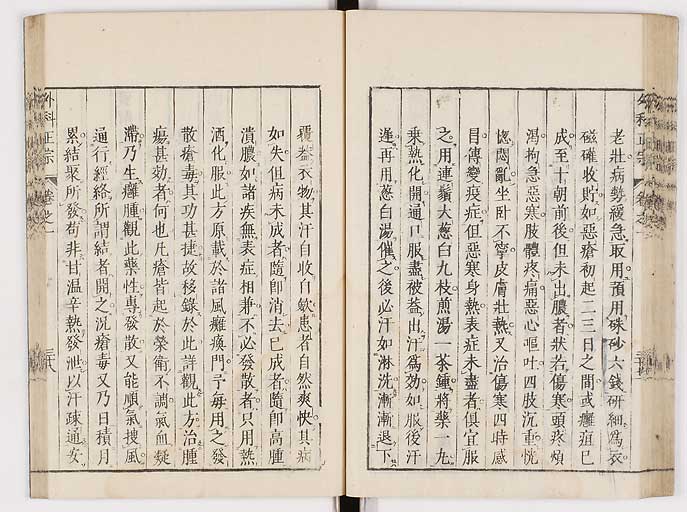 老壯病勢緩急取用預用硃砂六錢研細為衣
磁礶收貯如惡瘡初起二三日之間或癰疽已
成至十朝前後但未出膿者狀若傷寒頭疼煩
渴拘急惡寒肢體疼痛惡心嘔吐四肢沉重恍
惚悶亂坐卧不寧皮膚壯熱又治傷寒四時感
目傳變疫症但惡寒身熱表症未盡者俱宜服
之用連鬚大葱白九枝煎湯一茶鍾將藥一九
乗熱化開通口服盡被葢出汗為効如服後汗
遲再用葱白湯催之後必汗如淋洗漸漸退下
覆葢衣物其汗自收自歛患者自然爽快其病
如失但病未成者隨即消去已成者隨即高腫
潰膿如諸疾無表症相兼不必發散者只用熱
酒化服此方原載於諸風癱瘓門予每用之發
散瘡毒其功甚捷故移錄於此詳觀此方治腫
瘍甚効者何也凡瘡皆起於榮衛不調氣血凝
滯乃生癰腫觀此藥性專發散又能順氣搜風
通行經絡所謂結者開之况瘡毒又乃日積月
累結聚所發苟非甘温辛熱發泄以汗疎通安
外科正宗
卷之一
外科正宗
卷之一